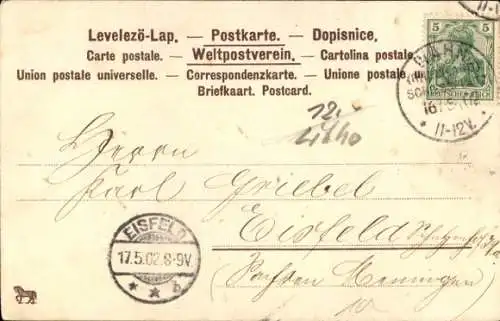 Levelezö-Lap. — Postkarte. — Dopisnice.
Carte postale. — Weltpostverein. — Cartolina postale.
Union postale universelle. — Correspondenzkarte. — Unione postale
Briefkaart. Postcard.
5 5
DEUTSCHES REICH
11-12V.
12.
Herrn
Karl Griebel
Eisfeld
(Sachsen Meiningen)
EISFELD
17.5.02.8-9V.
* * b
10